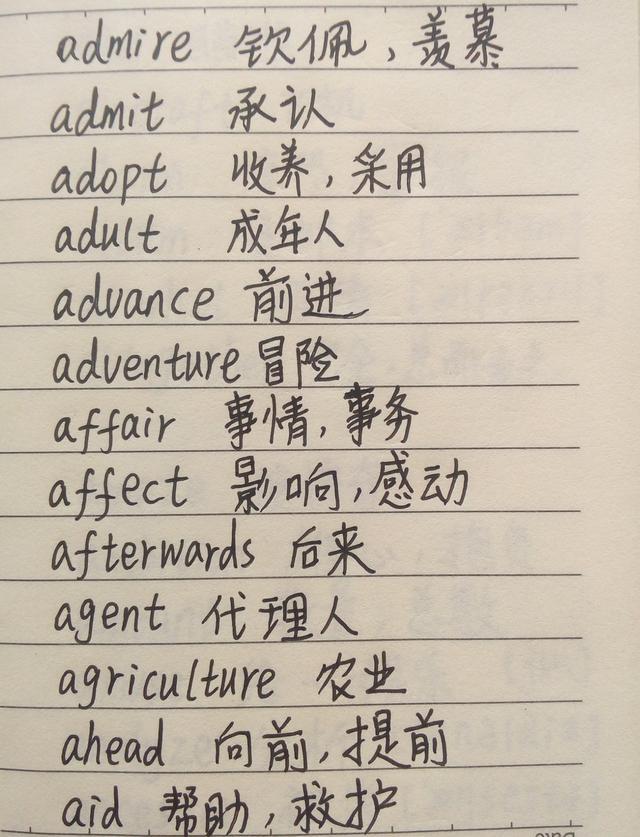 admire 钦佩，羡慕
admit 承认
adopt 收养，采用
adult 成年人
advance 前进
adventure 冒险
affair 事情，事务
affect 影响，感动
afterwards 后来
agent 代理人
agriculture 农业
ahead 向前，提前
aid 帮助，救护